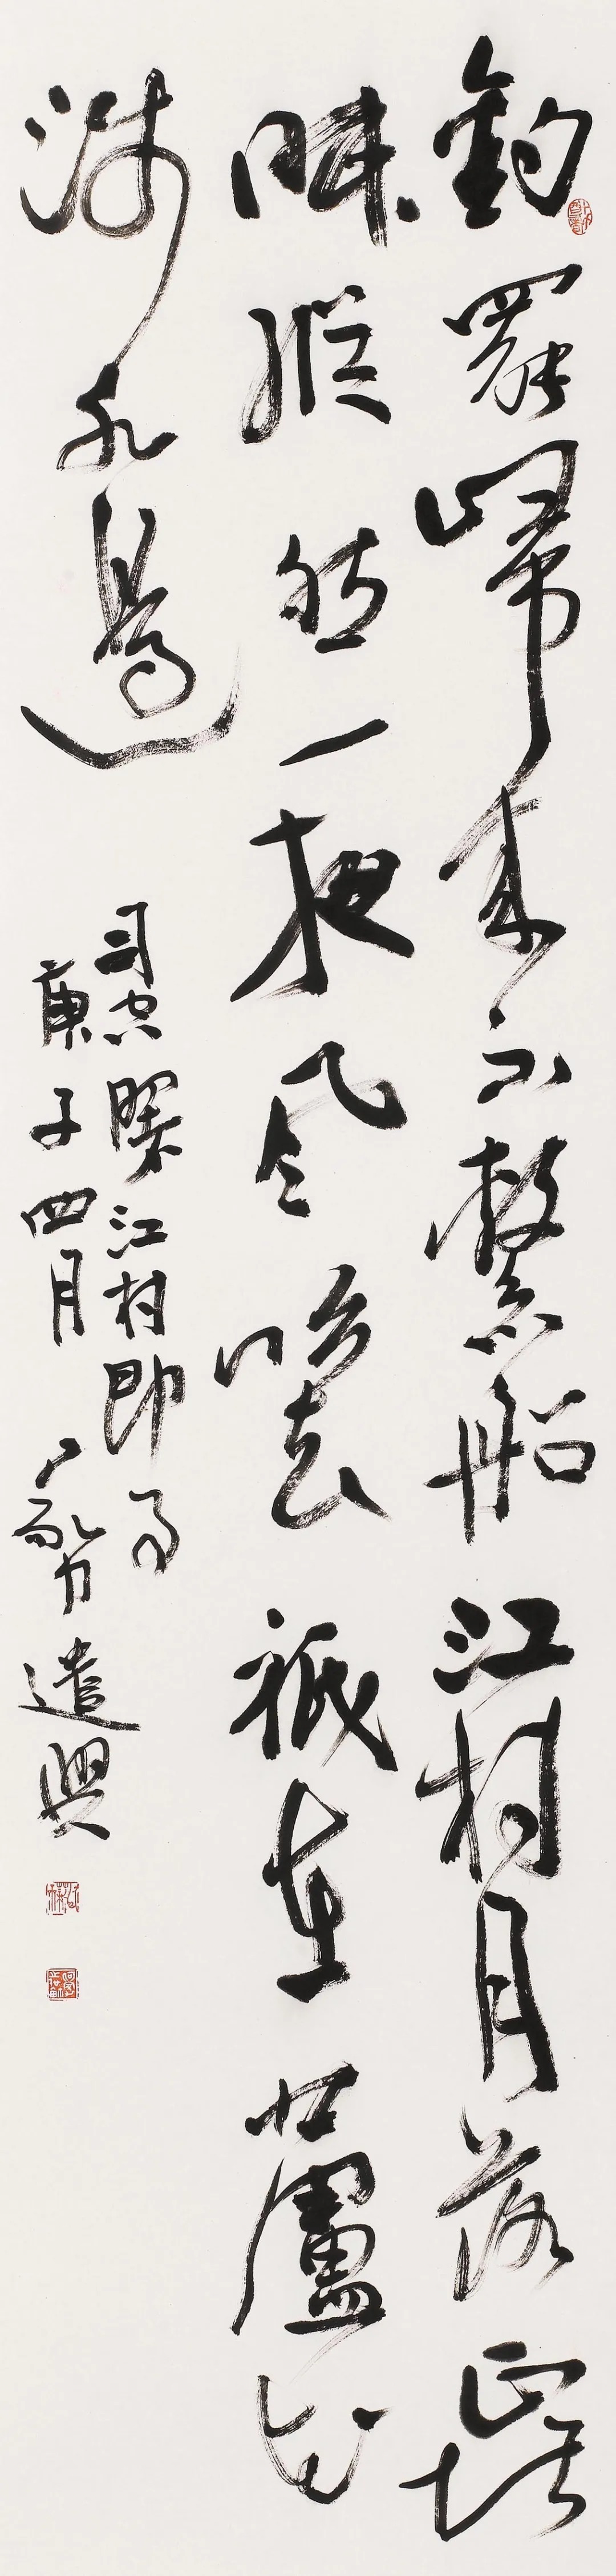 釣罷歸來不繫船江村月落正堪
眠縱然一夜風吹去祇在蘆花
淺水邊
司空曙江村即事
庚子四月 遣興